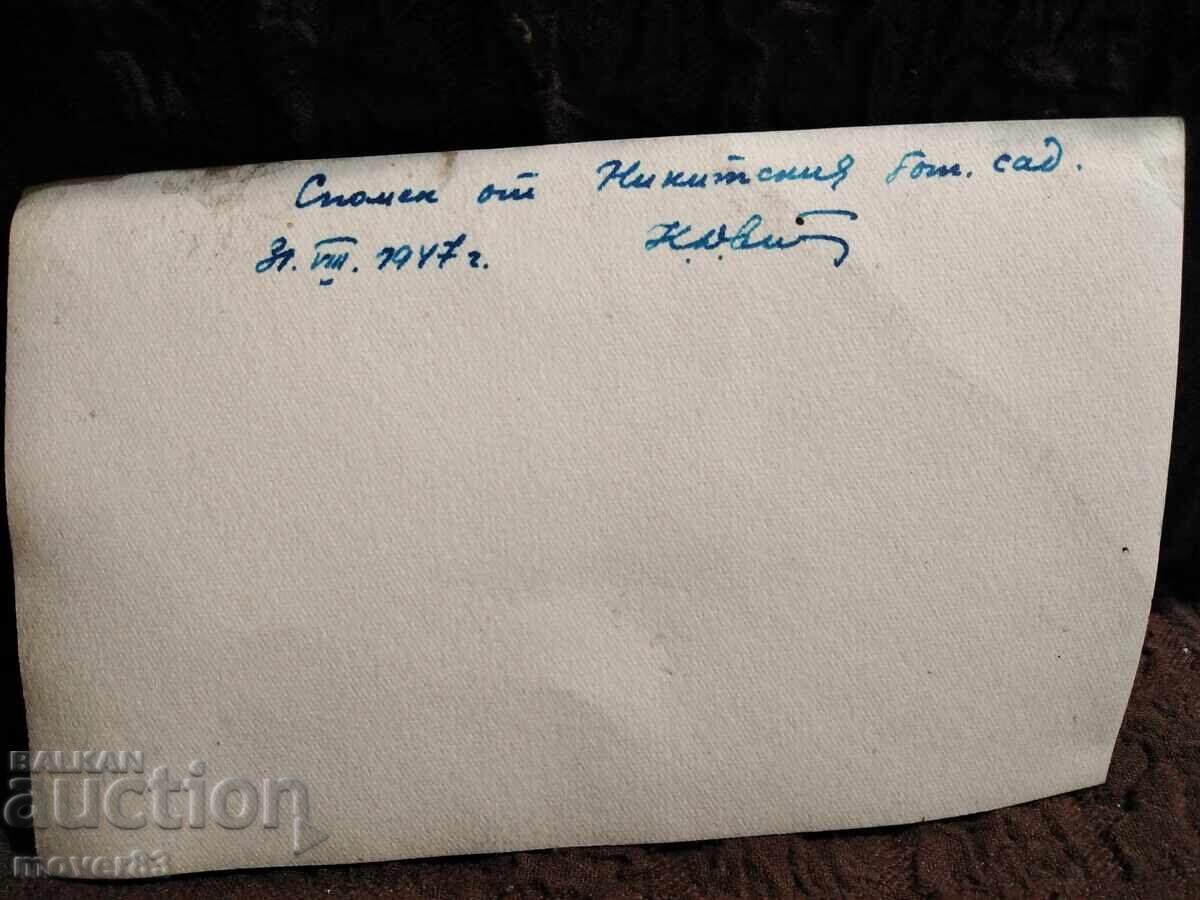 Спомен от Никитския бот. сад.
31. VIII. 1947 г.
BALKAN
auction
mover83